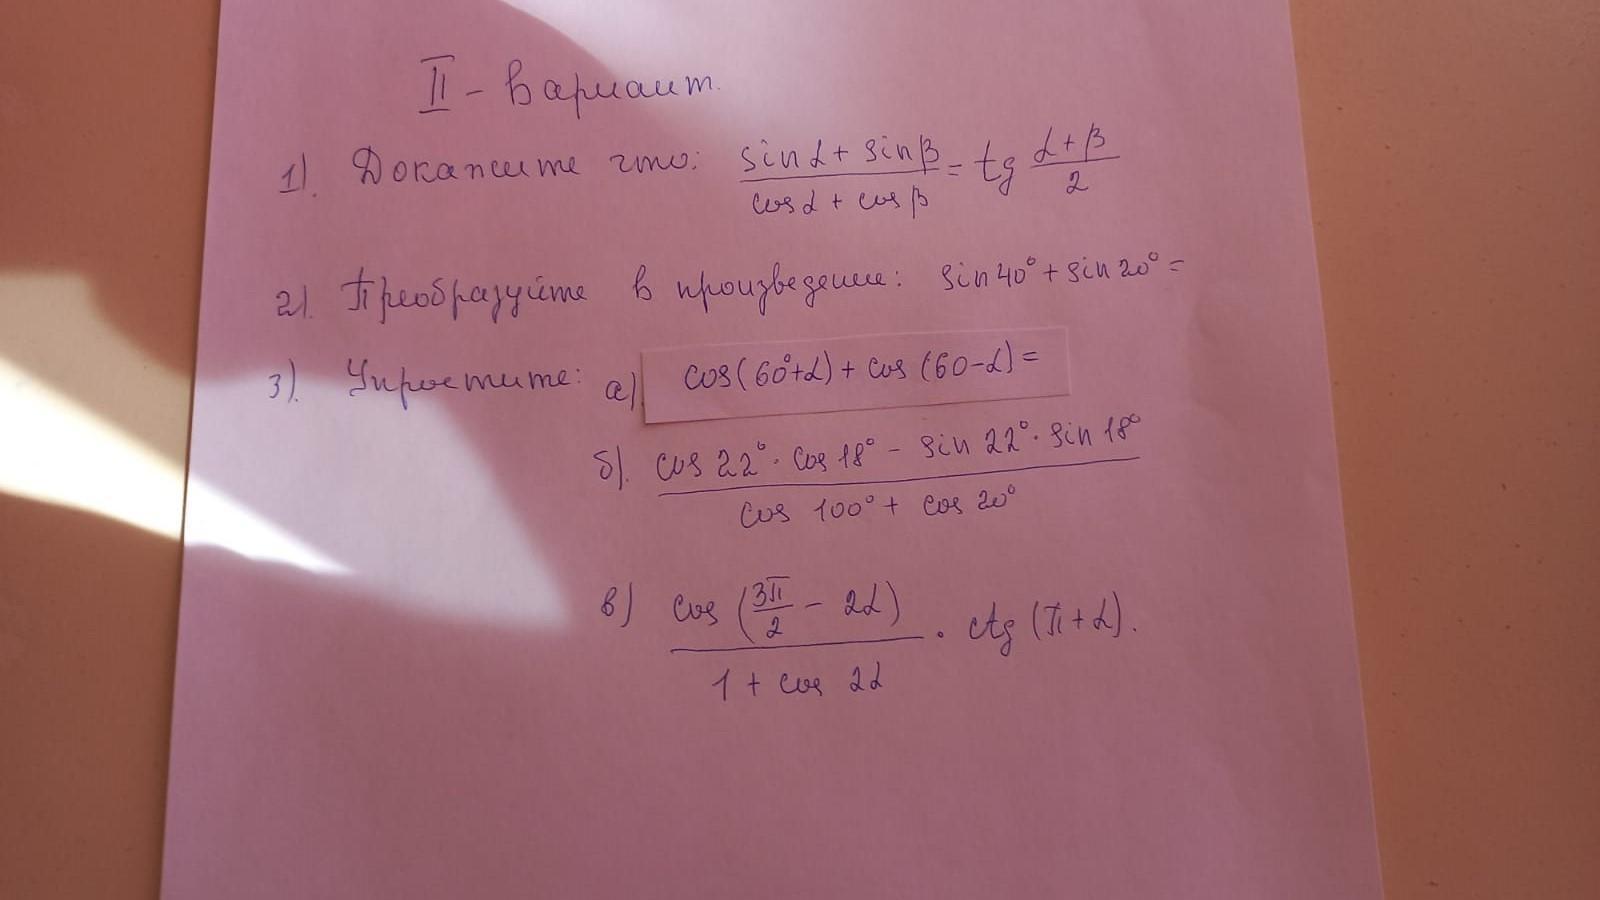 II - вариант.
1). Докажите что: (sin α + sin β)/(cos α + cos β) = tg (α + β)/2
2). Преобразуйте в произведение: sin 40° + sin 20° =
3). Упростите: а). cos(60°+α) + cos(60-α) =
б). (cos 22° · cos 18° - sin 22° · sin 18°)/(cos 100° + cos 20°)
в) cos(3π/2 - 2α)/(1 + cos 2α) · ctg(π+α).